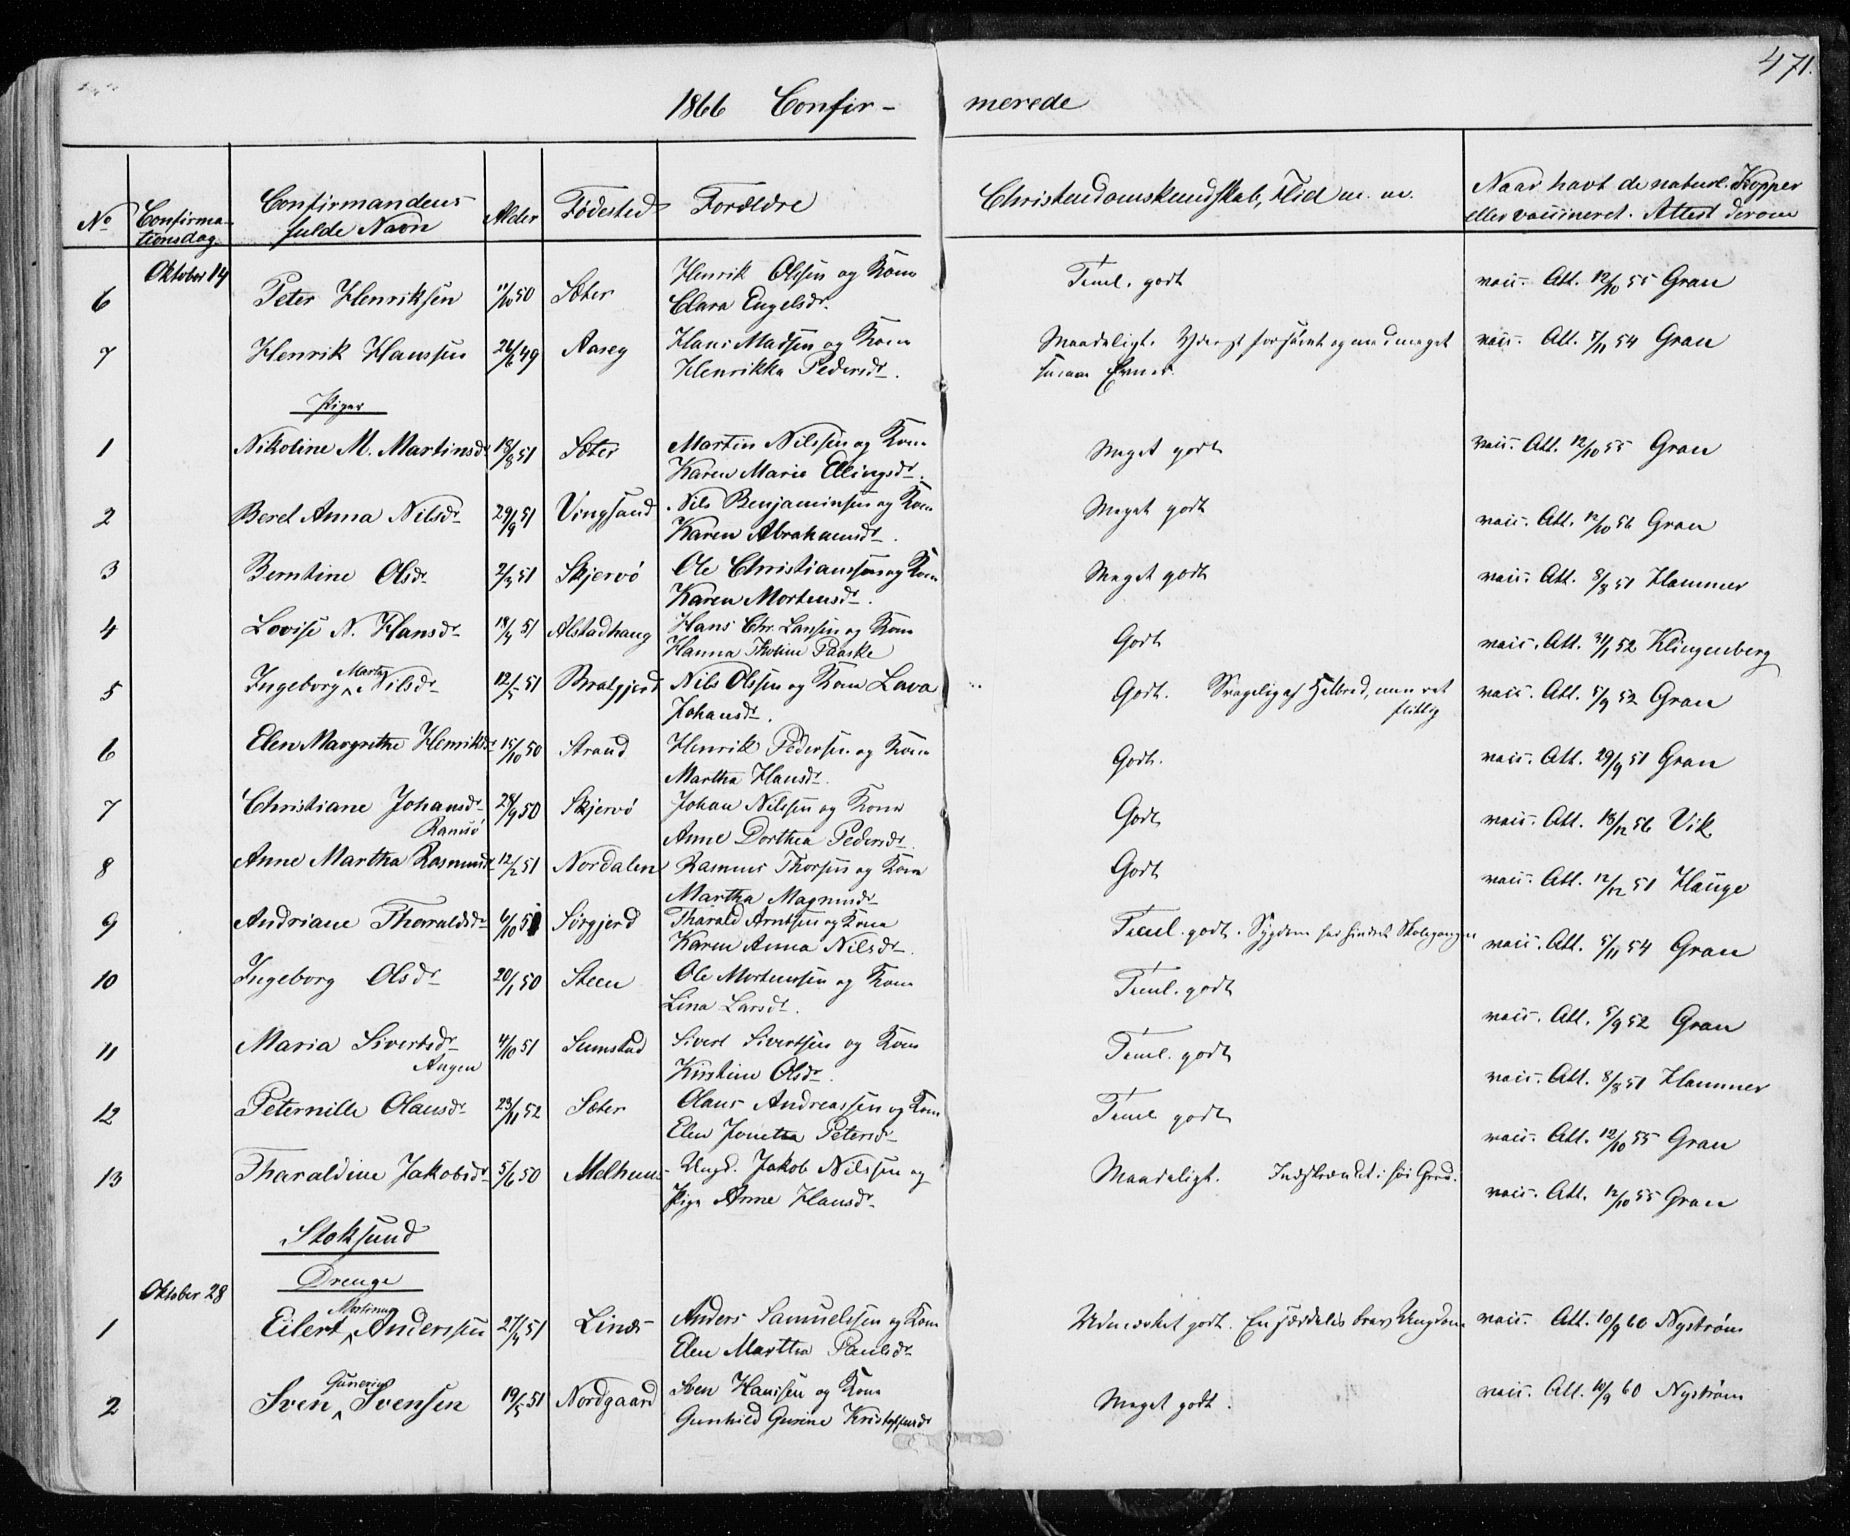 471.
1866 Confir- merede
No Confirma-tionsdag. Confirmandens fulde Navn Alder Fødested Forældre Christendomskundskab, Flid m. m. Naar havt de naturl. Kopper eller vaccineret. Attest derom
Oktober 14
6 Peter Henriksen 11/10 50 Sæter Henrik Olsen og Kone Clara Engelsdr. Teml. godt vacc. Att. 12/10 55 Gran
7 Henrik Hanssen 26/6 49 Aarey Hans Madsen og Kone Henrikka Pedersdr. Maadeligt. Yderst forsømt og med meget smaae Evner. vacc. Att. 5/11 54 Gran
Piger
1 Nikoline M. Martinsdr 18/8 51 Sæter Martin Nilssen og Kone Karen Marie Ellingsdr. Meget godt vacc. Att. 12/10 55 Gran
2 Beret Anna Nilsdr 29/9 51 Vingsand Nils Benjaminsen og Kone Karen Abrahamsdr. Meget godt vacc. Att. 12/10 56 Gran
3 Berntine Olsdr 2/3 51 Skjervø Ole Christianssen og Kone Karen Mortensdr. Meget godt vacc. Att. 8/8 51 Hammer
4 Lovise N. Hansdr 18/4 51 Alstadhaug Hans Chr. Larssen og Kone Hanna Paaske Godt vacc. Att. 31/1 52 Klingenberg
5 Ingeborg Martha Nilsdr 12/5 51 Bratgjerd Nils Olssen og Kone Lava Johansdr. Godt. Svagelig af Helbred, men ret flittig vacc. Att. 5/9 52 Gran
6 Elen Margrethe Henriksdr 15/10 50 Strand Henrik Pedersen og Kone Martha Hansdr. Godt. vacc. Att. 29/9 51 Gran
7 Christiane Johansdr 28/9 50 Skjervø Johan Nilssen og Kone Anne Dorthea Pedersdr. Godt vacc. Att. 18/12 56 Vik
Ramsø
8 Anne Martha Rasmusdr 12/2 51 Nordalen Rasmus Thorsen og Kone Martha Magnusdr Godt vacc. Att. 12/12 51 Hauge
9 Andriane Tharaldsdr 6/10 51 Sørgjerd Tharald Arntsen og Kone Karen Anna Nilsdr. Teml. godt. Sygdom har hindret Skolegangen vacc. Att. 5/11 54 Gran
10 Ingeborg Olsdr 20/1 50 Steen Ole Mortenssen og Kone Lina Larsdr. Teml. godt vacc. Att. 5/9 52 Gran
11 Maria Sivertsdr 4/10 51 Sumstad Sivert Sivertsen og Kone Kirstine Olsdr. Teml. godt vacc. Att. 8/8 51 Hammer
Angen
12 Peternille Olausdr 23/11 52 Sæter Olaus Andreassen og Kone Elen Jonetta Petersdr Teml. godt vacc. Att. 12/10 55 Gran
13 Tharaldine Jakobsdr 5/6 50 Melhuus Ungk. Jakob Nilssen og Pige Anne Hansdr Maadeligt. Indskrænket i høi Grad. vacc. Att. 12/10 55 Gran
Stoksund
Drenge
Oktober 28
1 Eilert Martinus Anderssen 27/4 51 Linæs Anders Samuelssen og Kone Elen Martha Paulsdr Udmærket godt. En særdeles brav Ungdom vacc. Att. 10/9 60 Nystrøm
2 Sven Gunerius Svensen 19/5 51 Nordgaard Sven Hanssen og Kone Gunhild Gurine Kristoffersdr Meget godt. vacc. Att. 10/9 60 Nystrøm